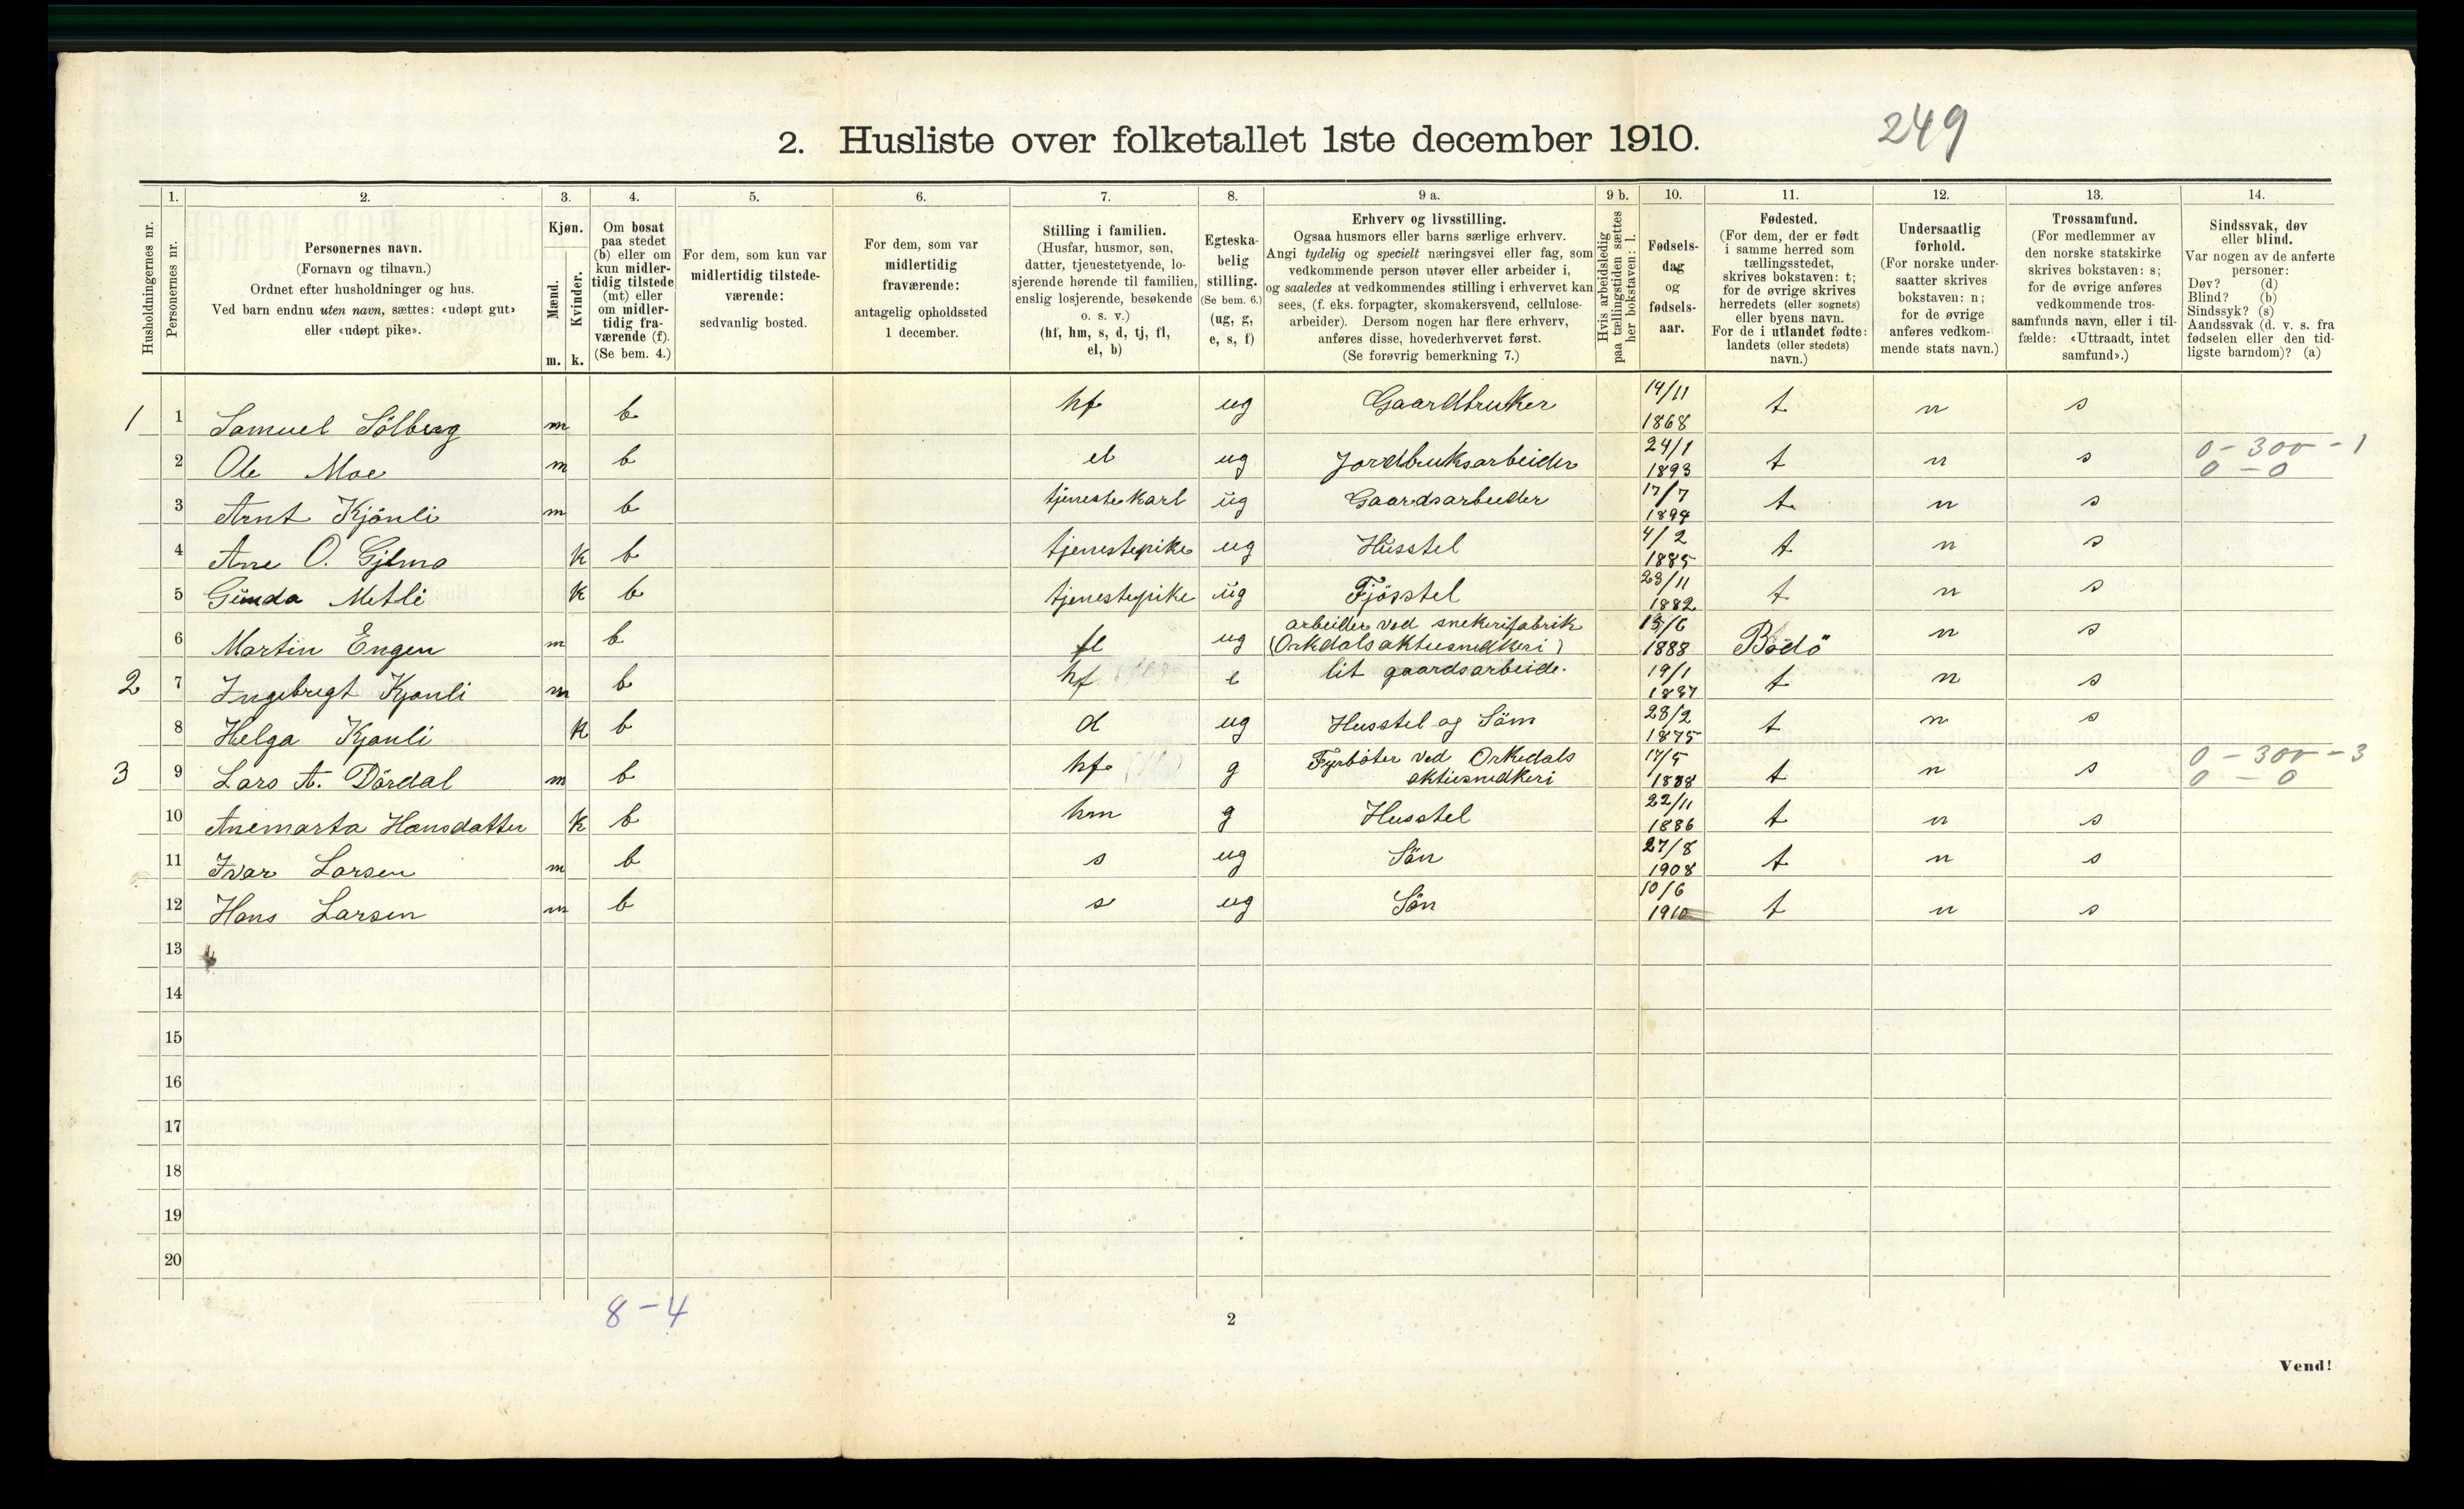 2. Husliste over folketallet 1ste december 1910.
249
Husholdningernes nr.
1.
Personernes nr.
2.
Personernes navn.
(Fornavn og tilnavn.)
Ordnet efter husholdninger og hus.
Ved barn endnu uten navn, sættes: «udøpt gut»
eller «udøpt pike».
3.
Kjøn.
Mænd.
Kvinder.
m. k.
4.
Om bosat
paa stedet
(b) eller om
kun midler-
tidig tilstede
(mt) eller
om midler-
tidig fra-
værende (f).
(Se bem. 4.)
5.
For dem, som kun var
midlertidig tilstede-
værende:
sedvanlig bosted.
6.
For dem, som var
midlertidig
fraværende:
antagelig opholdssted
1 december.
7.
Stilling i familien.
(Husfar, husmor, søn,
datter, tjenestetyende, lo-
sjerende hørende til familien,
enslig losjerende, besøkende
o. s. v.)
(hf, hm, s, d, tj, fl,
el, b)
8.
Egteska-
belig
stilling.
(Se bem. 6.)
(ug, g,
e, s, f)
9 a.
Erhverv og livsstilling.
Ogsaa husmors eller barns særlige erhverv.
Angi tydelig og specielt næringsvei eller fag, som
vedkommende person utøver eller arbeider i,
og saaledes at vedkommendes stilling i erhvervet kan
sees, (f. eks. forpagter, skomakersvend, cellulose-
arbeider). Dersom nogen har flere erhverv,
anføres disse, hovederhvervet først.
(Se forøvrig bemerkning 7.)
9 b.
Hvis arbeidsledig
paa tællingstiden sættes
her bokstaven: l.
10.
Fødsels-
dag
og
fødsels-
aar.
11.
Fødested.
(For dem, der er født
i samme herred som
tællingsstedet,
skrives bokstaven: t;
for de øvrige skrives
herredets (eller sognets)
eller byens navn.
For de i utlandet fødte:
landets (eller stedets)
navn.)
12.
Undersaatlig
forhold.
(For norske under-
saatter skrives
bokstaven: n;
for de øvrige
anføres vedkom-
mende stats navn.)
13.
Trossamfund.
(For medlemmer av
den norske statskirke
skrives bokstaven: s;
for de øvrige anføres
vedkommende tros-
samfunds navn, eller i til-
fælde: «Uttraadt, intet
samfund».)
14.
Sindssvak, døv
eller blind.
Var nogen av de anførte
personer:
Døv? (d)
Blind? (b)
Sindssyk? (s)
Aandssvak (d. v. s. fra
fødselen eller den tid-
ligste barndom)? (a)
1 1 Samuel Sölberg m b hf ug Gaardbruker 14/11 1868 t n s
2 Ole Moe m b el ug Jordbruksarbeider 24/1 1893 t n s 0 - 300 - 1
0 - 0
3 Arnt Kjönli m b tjenestekarl ug Gaardsarbeider 17/7 1894 t n s
4 Ane O. Gjelmo k b tjenestepike ug Husstel 4/2 1885 t n s
5 Gunda Metli k b tjenestepike ug Fjösstel 23/11 1882 t n s
6 Martin Engen m b fl ug arbeider ved snekerifabrik
(Orkdals aktiesnedkeri) 13/6 1888 Bödö n s
2 7 Ingebregt Kjonli m b hf e lit gaardsarbeide. 19/1 1837 t n s
8 Helga Kjonli k b d ug Husstel og Söm 28/2 1875 t n s
3 9 Lars A. Dördal m b hf g Fyrböter ved Orkedals
aktiesnedkeri 17/5 1888 t n s 0 - 300 - 3
0 - 0
10 Anemarta Hansdatter k b hm g Husstel 22/11 1886 t n s
11 Ivar Larsen m b s ug Sön 27/8 1908 t n s
12 Hans Larsen m b s ug Sön 10/6 1910 t n s
13
14
15
16
17
18
19
20
8-4
2
Vend!